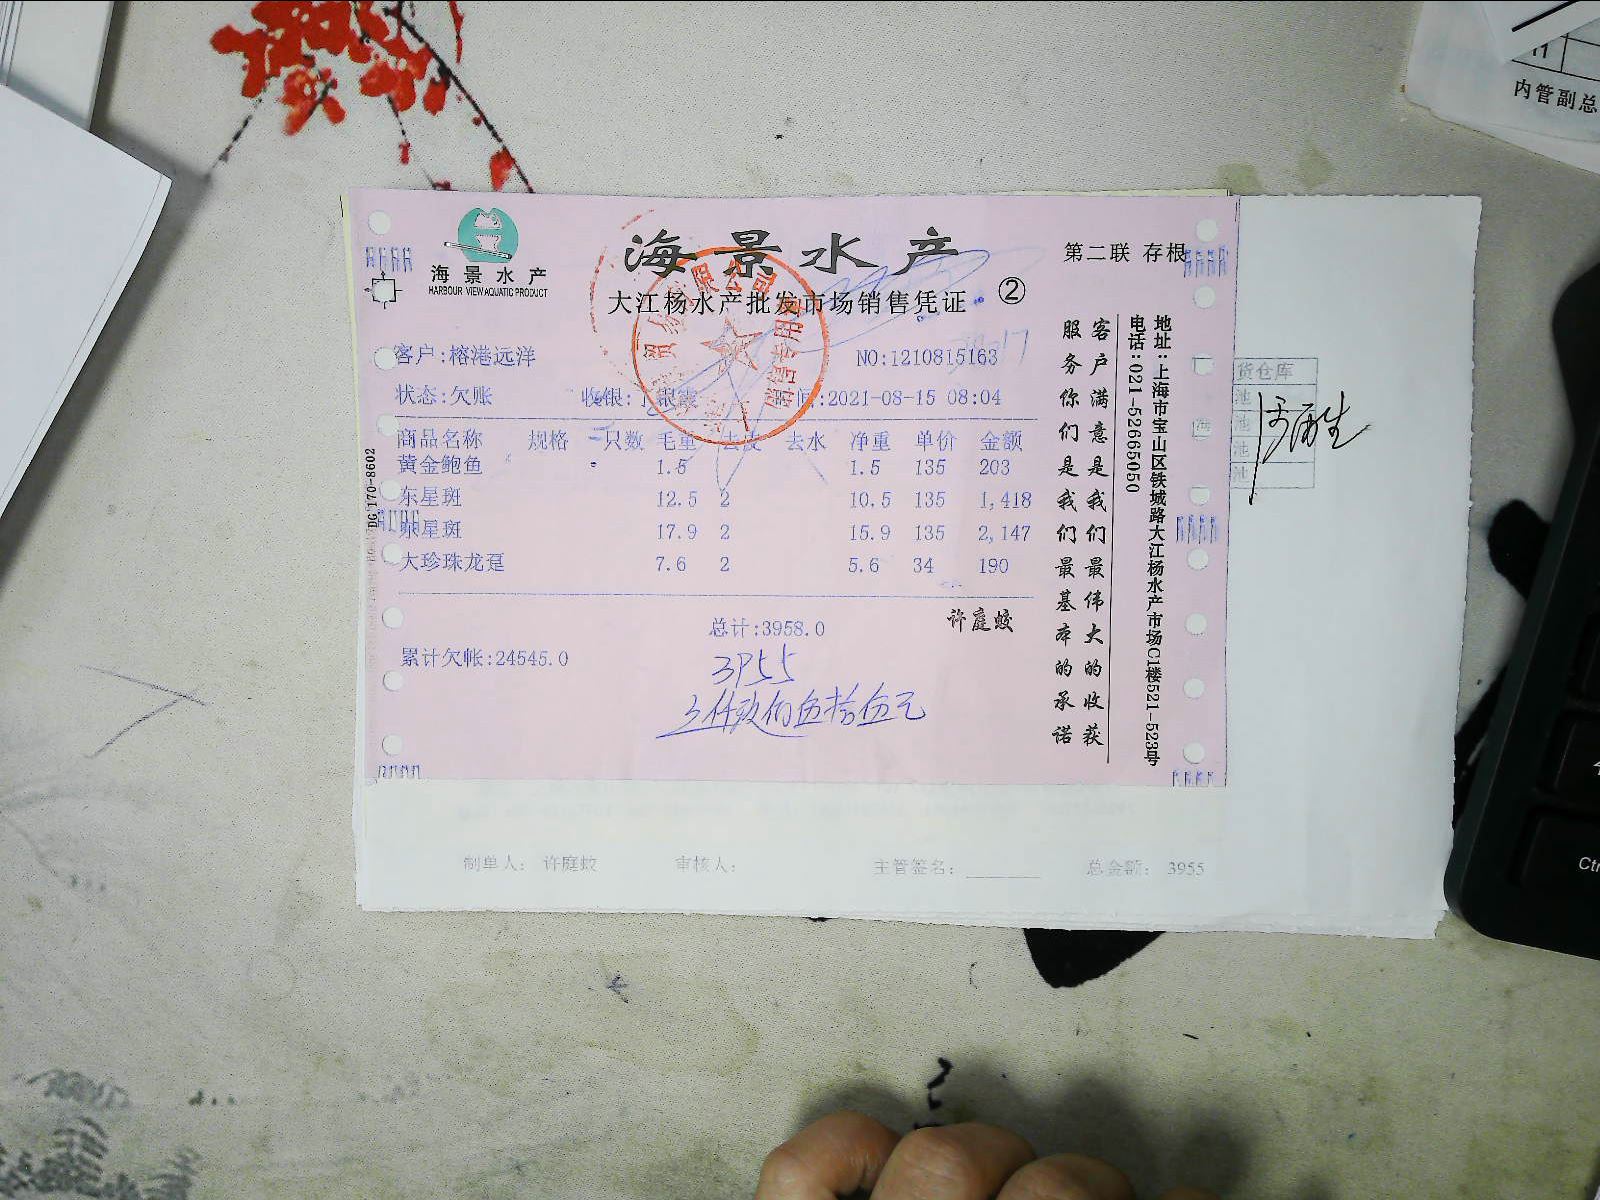 11
内管副总
海景水产
HARBOUR VIEW AQUATIC PRODUCT
海景水产
第二联 存根
大江杨水产批发市场销售凭证 ②
客户:榕港远洋 NO:1210815163
状态:欠账 收银: 银霞 间:2021-08-15 08:04
商品名称 规格 只数 毛重 去皮 去水 净重 单价 金额
黄金鲍鱼 1.5 1.5 135 203
东星斑 12.5 2 10.5 135 1,418
东星斑 17.9 2 15.9 135 2,147
大珍珠龙趸 7.6 2 5.6 34 190
总计:3958.0 许庭蛟
累计欠帐:24545.0
3955
三仟玖佰伍拾伍元
客户满意是我们最伟大的收获
服务你们是我们最基本的承诺
地址:上海市宝山区铁城路大江杨水产市场C1楼521-523号
电话:021-52665050
DG 170-8602
货仓库
池
池
池
池
制单人: 许庭蛟 审核人: 主管签名: 总金额: 3955
Ctr